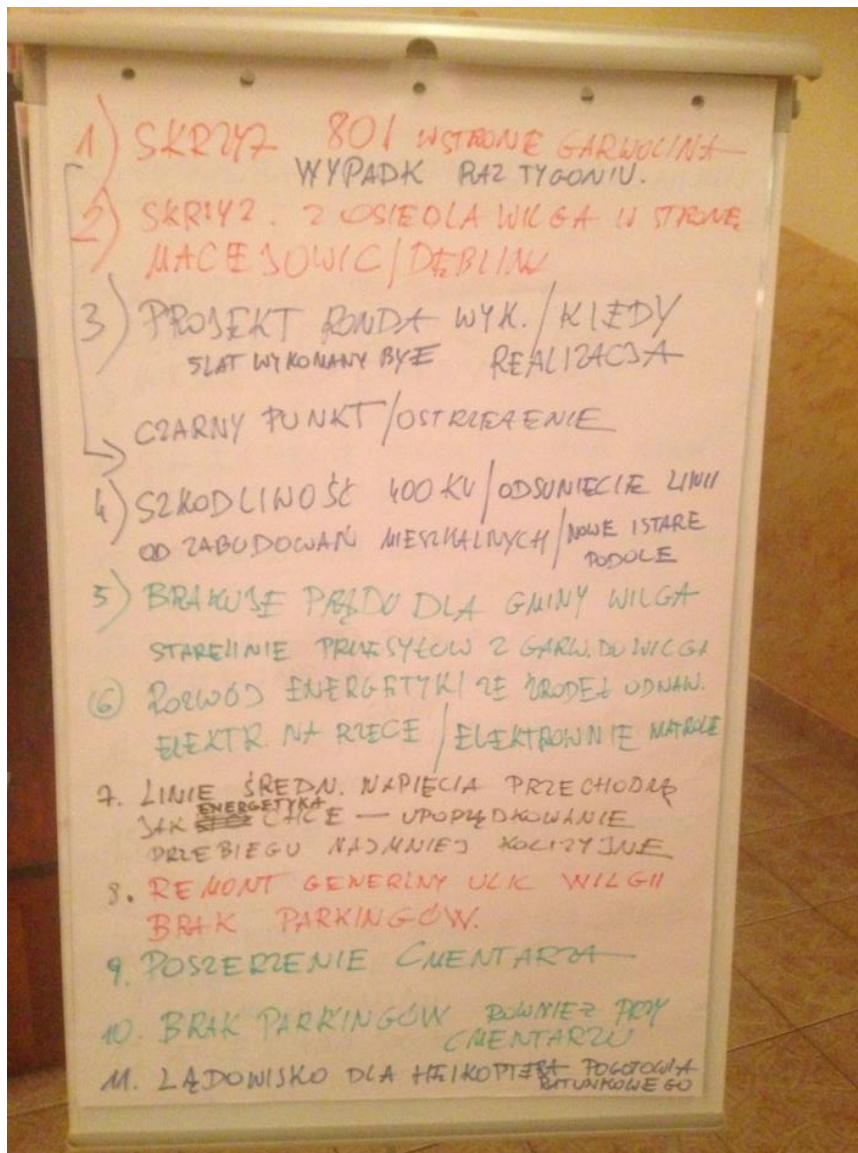 1) SKRZYŻ 801 W STRONE GARWOLINA
WYPADK RAZ TYGONIU.
2) SKRZYŻ. Z OSIEDLA WILGA W STRONĘ
MACEJOWIC/DĘBLINA
3) PROJEKT RONDA WYK./KIEDY
5 LAT WYKONANY BYŁ REALIZACJA
CZARNY PUNKT/OSTRZEŻENIE
4) SZKODLIWOŚĆ 400 KV/ODSUNIĘCIE LINII
OD ZABUDOWAŃ MIESZKALNYCH/NOWE I STARE
PODOLE
5) BRAKUJE PRĄDU DLA GMINY WILGA
STARE LINIE PRZESYŁOW Z GARW. DO WILGA
6 ROZWÓJ ENERGETYKI ZE ŹRODEŁ ODNAW.
ELEKTR. NA RZECE / ELEKTROWNIE
7. LINIE ŚREDN. NAPIĘCIA PRZECHODZĄ
JAK ENERGETYKA CHCE — UPOPRZĄDKOWANIE
PRZEBIEGU NAJMNIEJ KOLIZYJNE
8. REMONT GENERLNY ULIC WILGII
BRAK PARKINGÓW.
9. POSZERZENIE CMENTARZA
10. BRAK PARKINGÓW ROWNIEŻ PRZY
CMENTARZU
11. LĄDOWISKO DLA HELIKOPTERA POGOTOWIA
RATUNKOWEGO